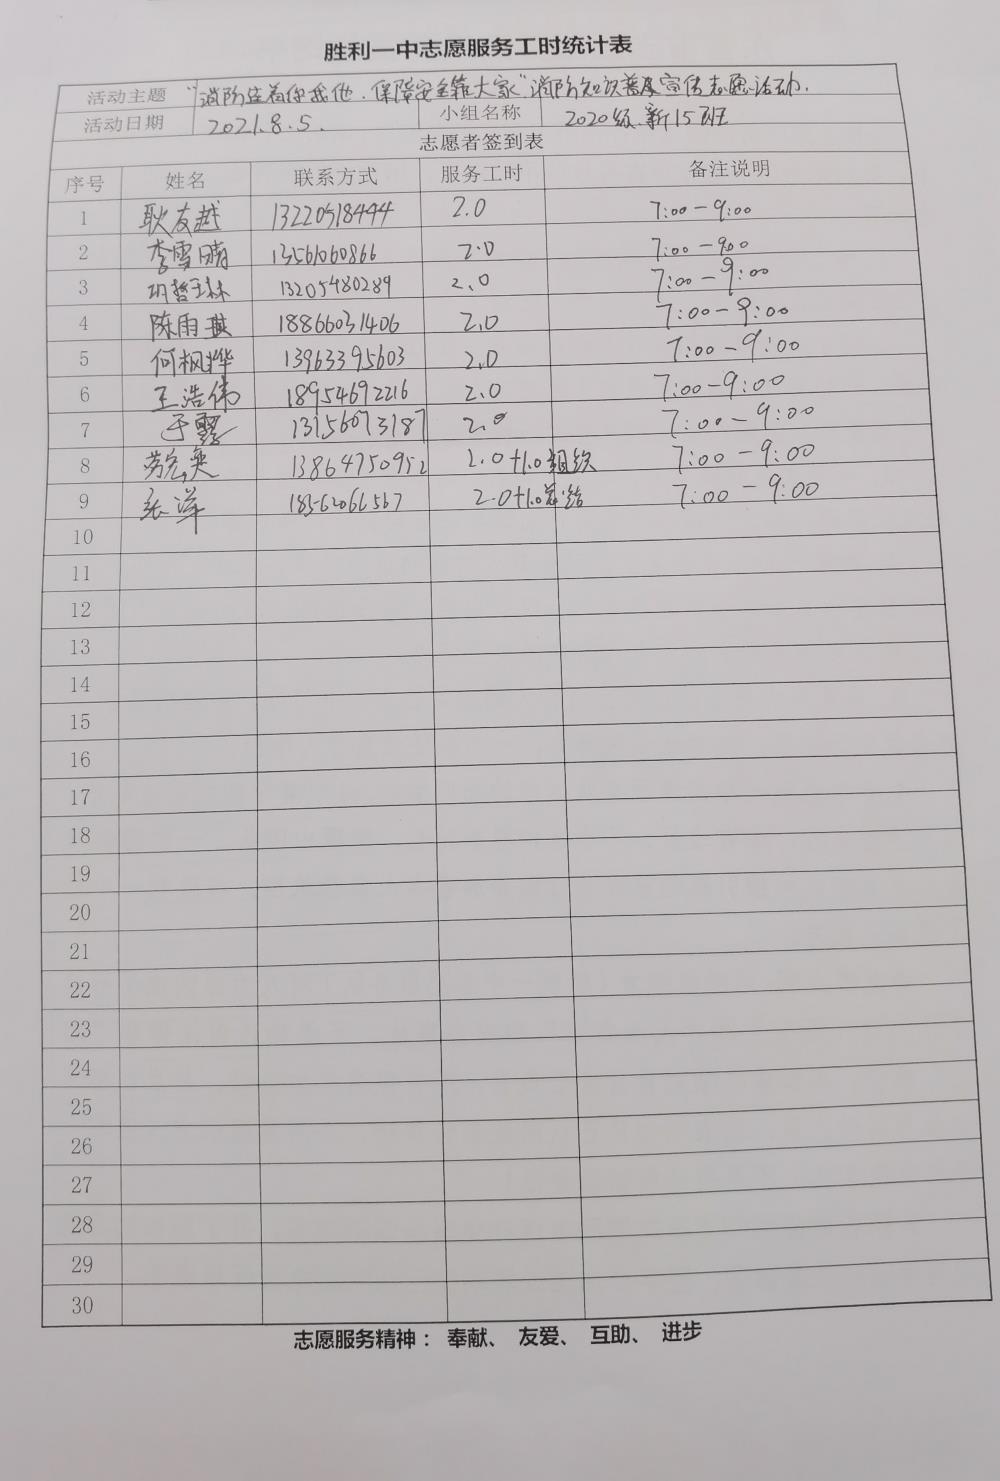 胜利一中志愿服务工时统计表
活动主题 "消防连着你我他,保障安全靠大家"消防知识普及宣传志愿活动.
活动日期 2021.8.5. 小组名称 2020级新15班
志愿者签到表
序号 姓名 联系方式 服务工时 备注说明
1 耿友越 13220518444 2.0 7:00-9:00
2 李雪晴 13561060866 2.0 7:00-9:00
3 13205480289 2.0 7:00-9:00
4 陈雨琪 18866031406 2.0 7:00-9:00
5 何枫烨 13963395603 2.0 7:00-9:00
6 王浩伟 18954692216 2.0 7:00-9:00
7 于 2.0 7:00-9:00
8 13864750952 2.0+1.0组织 7:00-9:00
9 张洋 2.0+1.0总结 7:00-9:00
10
11
12
13
14
15
16
17
18
19
20
21
22
23
24
25
26
27
28
29
30
志愿服务精神: 奉献、 友爱、 互助、 进步